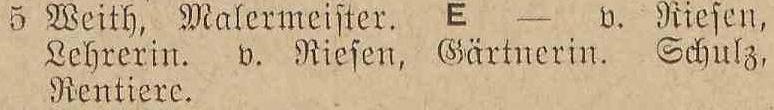 5 Weith, Malermeister. E — v. Riesen,
Lehrerin. v. Riesen, Gärtnerin. Schulz,
Rentiere.